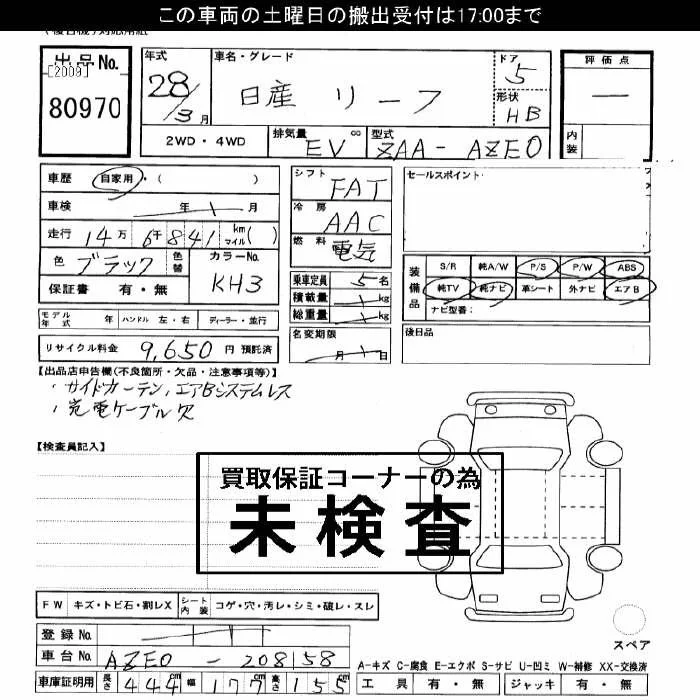 この車両の土曜日の搬出受付は17:00まで
出品No.
[2009]
80970
年式 28/3月
車名・グレード 日産 リーフ
ドア 5
形状 HB
評価点 —
内装
2WD・4WD
排気量 EV cc
型式 ZAA-AZE0
車歴 自家用・( )
車検 年 / 月
走行 14万6千841 km マイル( )
色 ブラック 色替
カラーNo. KH3
保証書 有・無
シフト FAT
冷房 AAC
燃料 電気
乗車定員 5名
積載量 / kg
総重量 / kg
セールスポイント
装備品
S/R 純A/W P/S P/W ABS
純TV 純ナビ 革シート 外ナビ エアB
ナビ型番:
モデル年式 年 ハンドル 左・右 ディーラー・並行
名変期限 月 / 日
後日品
リサイクル料金 9,650 円 預託済
【出品店申告欄(不良箇所・欠品・注意事項等)】
・サイドカーテン,エアBシステムレス
・充電ケーブル欠
【検査員記入】
買取保証コーナーの為
未検査
FW キズ・トビ石・割レX
シート内装 コゲ・穴・汚レ・シミ・破レ・スレ
登録No.
車台No. AZE0-208158
スペア
A-キズ C-腐食 E-エクボ S-サビ U-凹ミ W-補修 XX-交換済
車庫証明用 長さ 444cm 幅 177cm 高さ 155cm
工具 有・無 ジャッキ 有・無